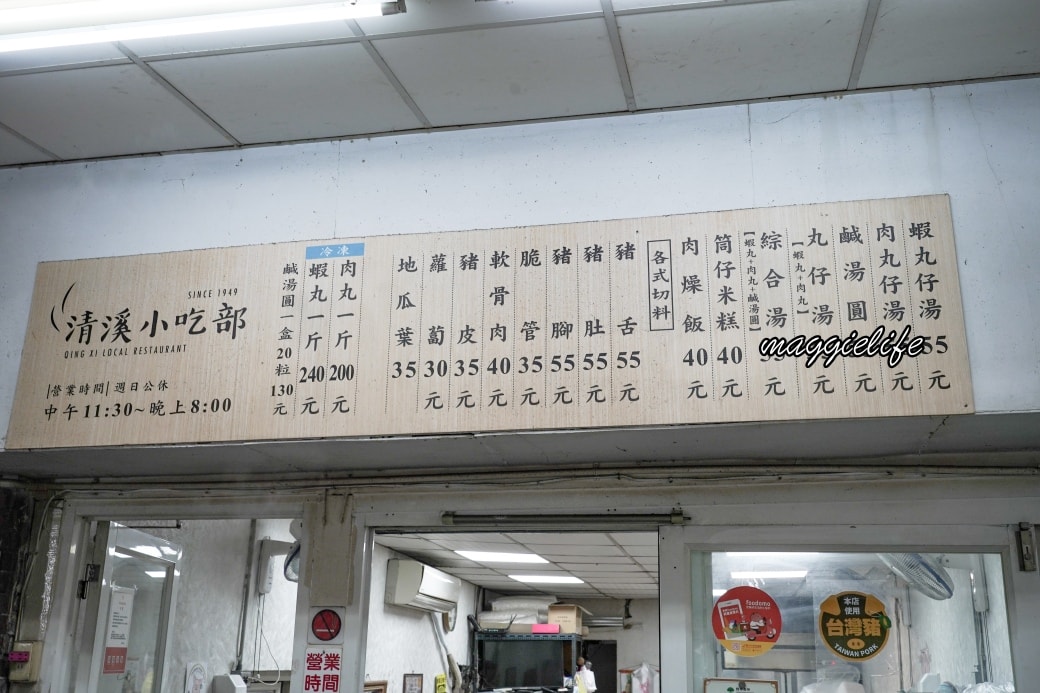 蝦丸仔湯 55元
肉丸仔湯 元
鹹湯圓 元
丸仔湯【蝦丸+肉丸】 元
綜合湯【蝦丸+肉丸+鹹湯圓】 元
筒仔米糕 40元
肉燥飯 40元
各式切料
豬舌 55元
豬肚 55元
豬腳 55元
脆管 35元
軟骨肉 40元
豬皮 35元
蘿蔔 30元
地瓜葉 35
冷凍
肉丸一斤 200元
蝦丸一斤 240元
鹹湯圓一盒20粒 130元
SINCE 1949
清溪小吃部
QING XI LOCAL RESTAURANT
|營業時間| 週日公休
中午11:30~晚上8:00
maggielife
營業
時間
foodomo
本店
使用
台灣豬
TAIWAN PORK